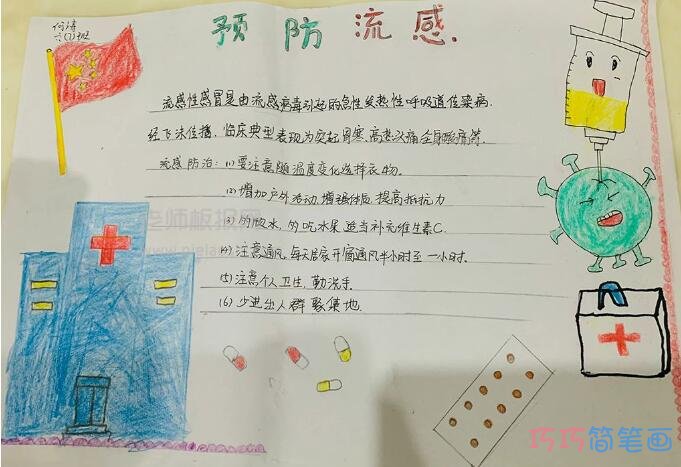 预防流感.
何涛
六(1)班
流感性感冒是由流感病毒引起的急性发热性呼吸道传染病.
经飞沫传播. 临床典型表现为突起胃寒、高热、头痛、全身酸痛等.
流感防治: (1)要注意随温度变化选择衣物.
(2)增加户外活动, 增强体质, 提高抵抗力
(3)多饮水, 多吃水果 适当补充维生素C.
(4)注意通风, 每天居家开窗通风半小时至一小时.
(5)注意个人卫生, 勤洗手.
(6)少进出人群聚集地.
老师板报网
巧巧简笔画